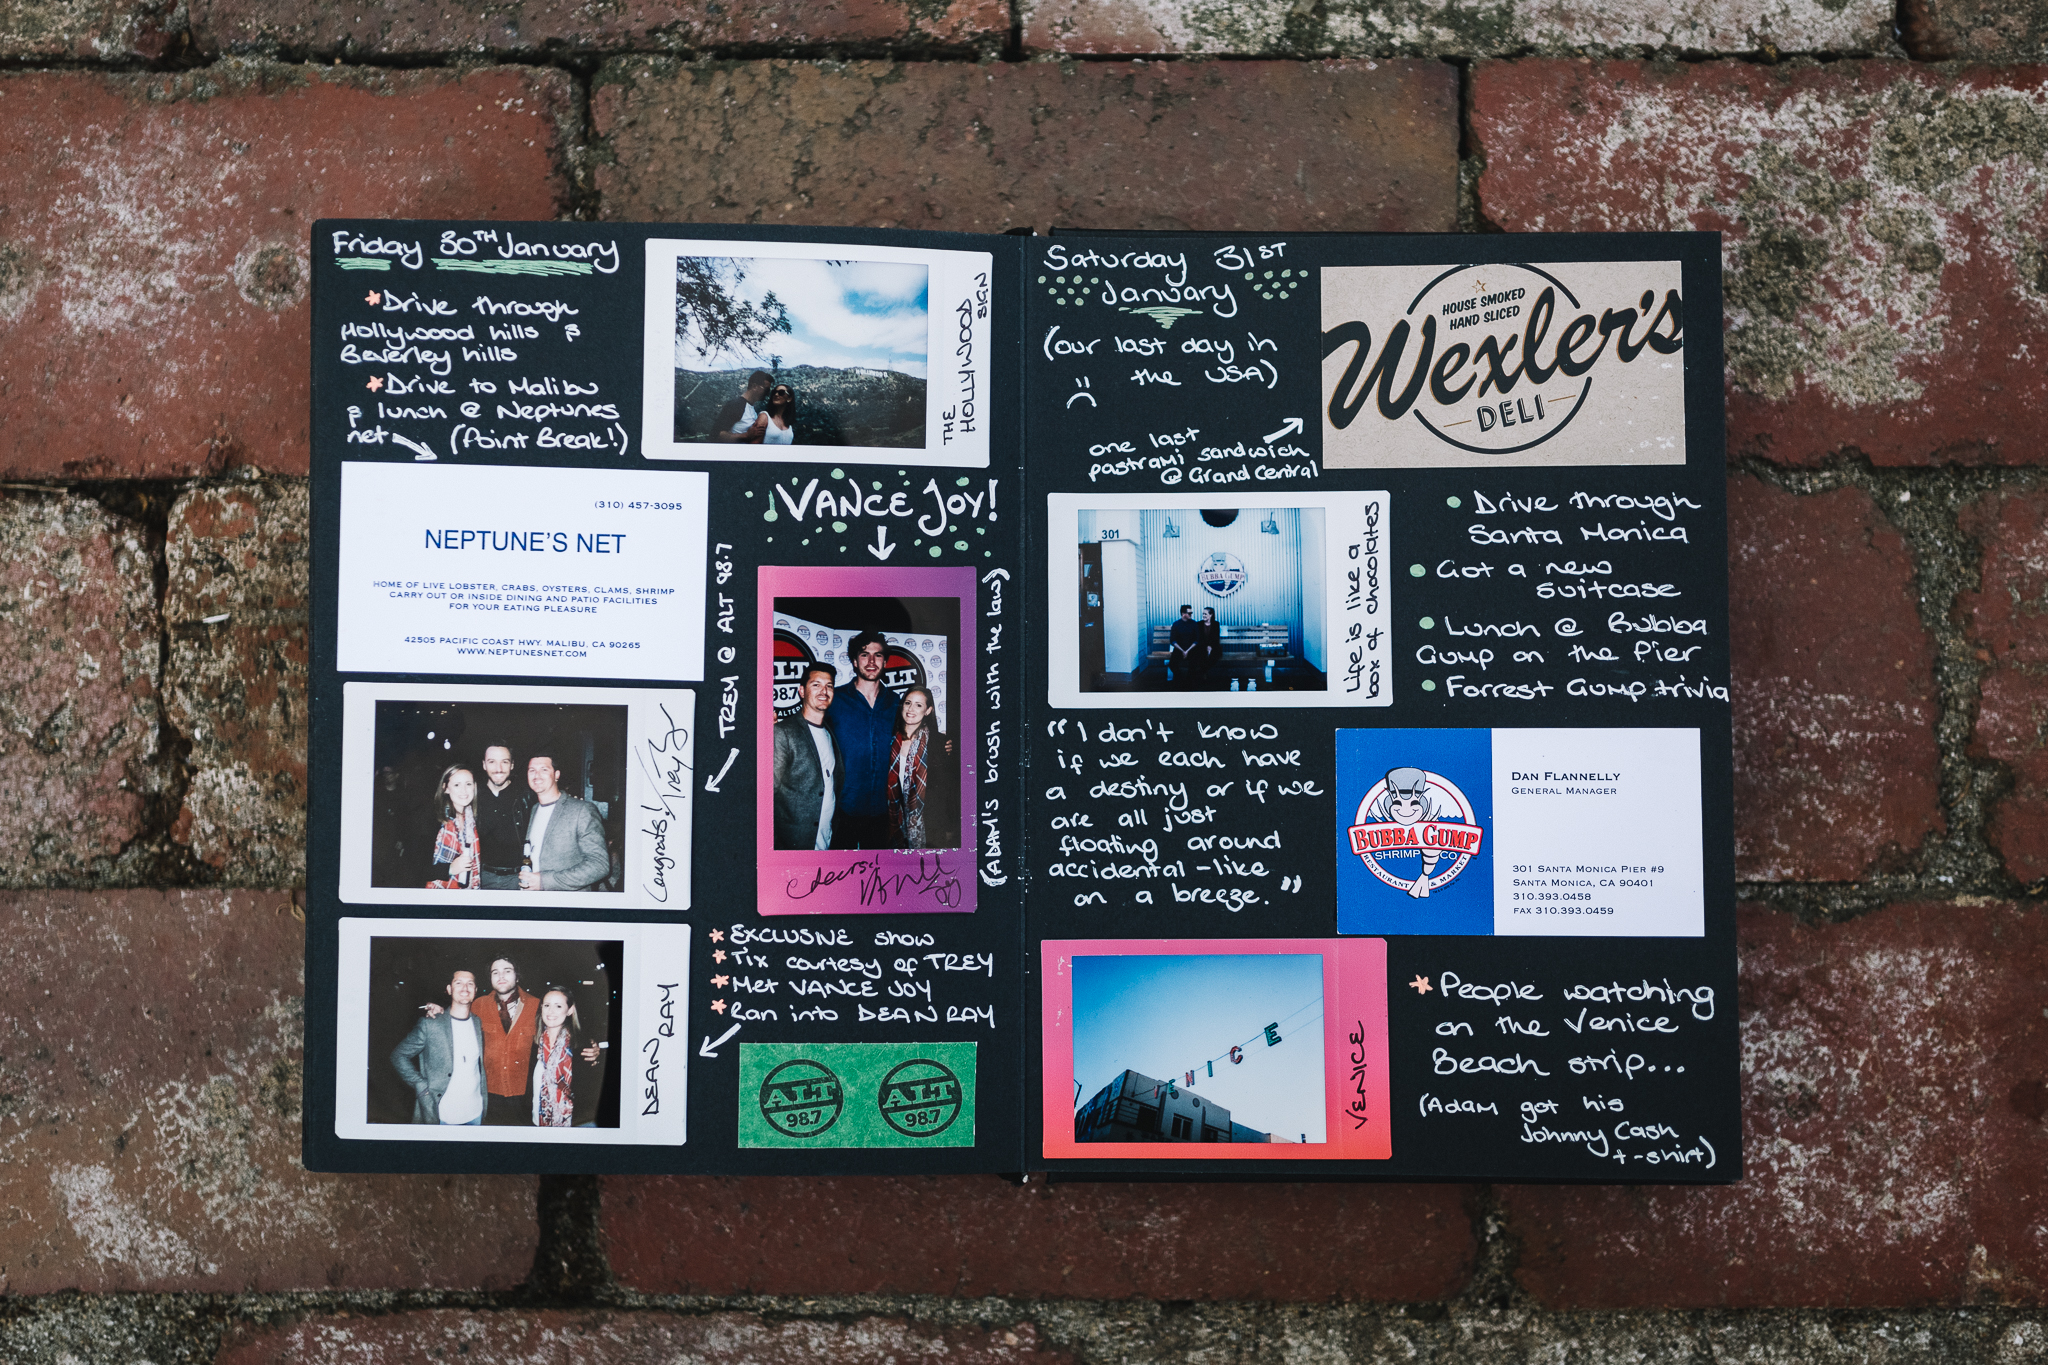 Friday 30TH January
*Drive through
Hollywood hills &
Beverley hills
*Drive to Malibu
& lunch @ Neptunes
net (Point Break!)
THE
HOLLYWOOD
SIGN
(310) 457-3095
NEPTUNE'S NET
HOME OF LIVE LOBSTER, CRABS, OYSTERS, CLAMS, SHRIMP
CARRY OUT OR INSIDE DINING AND PATIO FACILITIES
FOR YOUR EATING PLEASURE
42505 PACIFIC COAST HWY. MALIBU, CA 90265
WWW.NEPTUNESNET.COM
VANCE JOY!
TREY @ ALT 98.7
ALT
98.7
ALT
(ADAM'S brush with the law)
Cheers!
Congrats! Trey
DEAN
RAY
* EXCLUSIVE show
* Tix courtesy of TREY
* Met VANCE JOY
* Ran into DEAN RAY
ALT
98.7
ALT
98.7
Saturday 31ST
January
(our last day in
the USA)
one last
pastrami sandwich
@ Grand Central
HOUSE SMOKED
HAND SLICED
Wexler's
DELI
301
BUBBA GUMP
Life is like a
box of chocolates
Drive through
Santa Monica
Got a new
suitcase
Lunch @ Bubba
Gump on the Pier
Forrest Gump trivia
"I don't know
if we each have
a destiny or if we
are all just
floating around
accidental-like
on a breeze."
BUBBA GUMP
SHRIMP CO
RESTAURANT & MARKET
DAN FLANNELLY
GENERAL MANAGER
301 SANTA MONICA PIER #9
SANTA MONICA, CA 90401
310.393.0458
FAX 310.393.0459
VENICE
VENICE
* People watching
on the Venice
Beach strip...
(Adam got his
Johnny Cash
t-shirt)